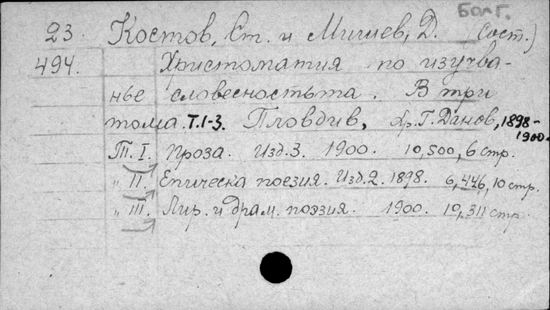 БОЛГ.
23. Костов, Ст. и Мишев, Д. (сост.)
494. Христоматия по изучва-
нье словесностьта. В три
тома. Т.1-3. Пловдив, Хр. Г. Данов, 1898-
1900.
Т. I. Проза. Изд. 3. 1900. 10,500, 6 стр.
„ II. Епическа поезия. Изд. 2. 1898. 6,446, 10 стр.
„ III. Лир. и драм. поэзия. 1900. 10,311 стр.